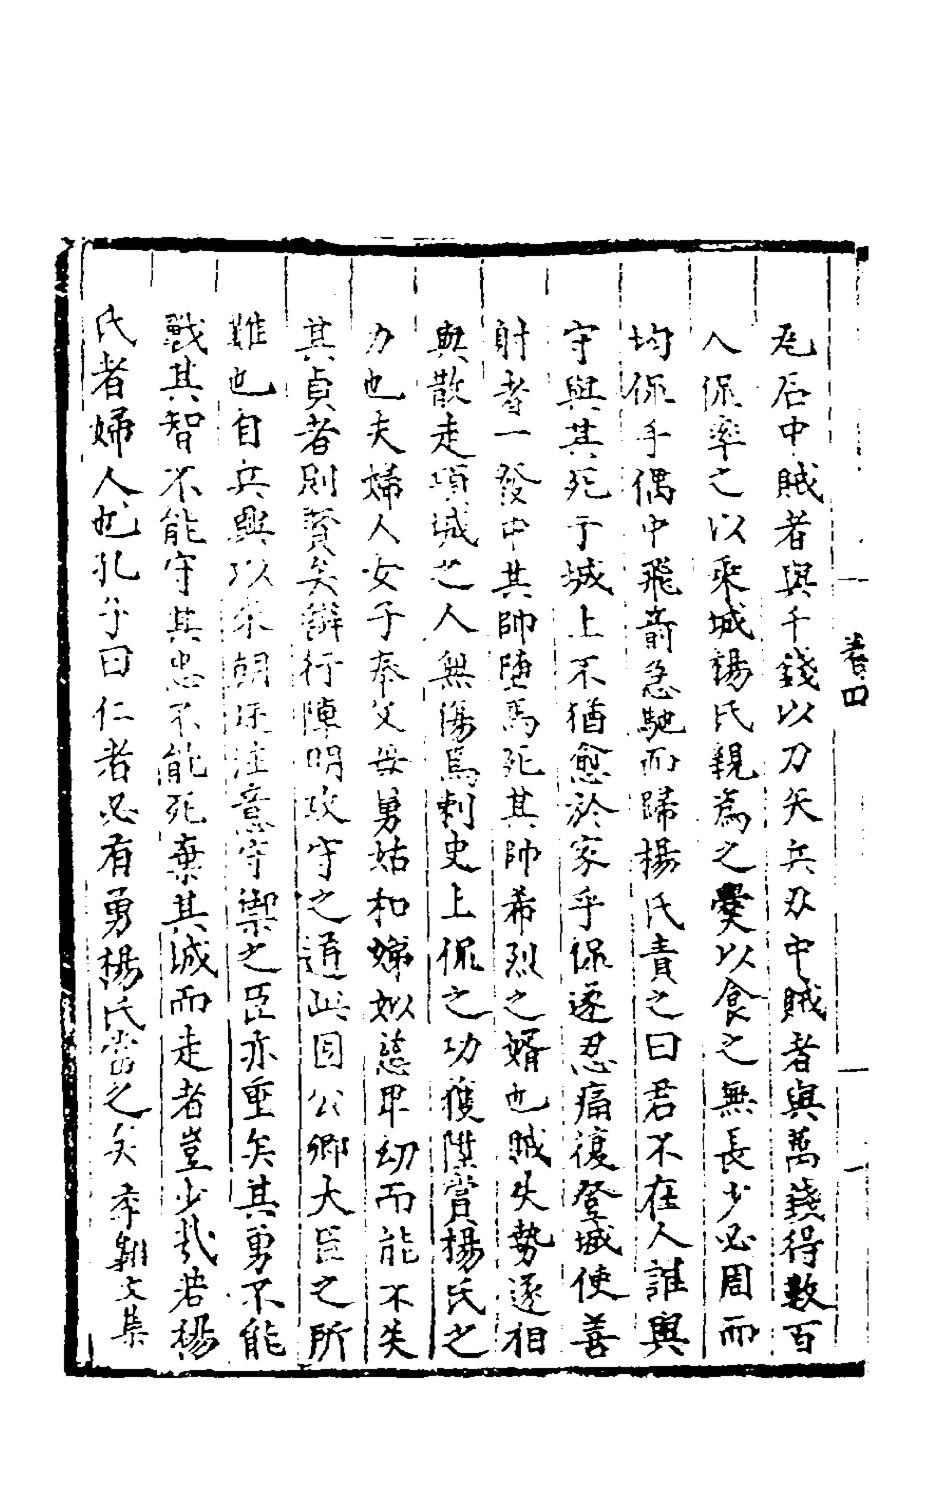 瓦石中賊者與千錢以刀矢兵刃中賊者與萬錢得數百
人侃率之以乘城楊氏親為之爨以食之無長少必周而
均侃手偶中飛箭急馳而歸楊氏責之曰君不在人誰與
守與其死于城上不猶愈於家乎侃遂忍痛復登城使善
射者一發中其帥墮馬死其帥希烈之婿也賊失勢遂相
與散走項城之人無傷焉刺史上侃之功獲陞賞楊氏之
力也夫婦人女子奉父母舅姑和娣姒慈卑幼而能不失
其貞者則賢矣辨行陣明攻守之道此固公卿大臣之所
難也自兵興以來朝廷注意守禦之臣亦重矣其勇不能
戰其智不能守其忠不能死棄其城而走者豈少哉若楊
氏者婦人也孔子曰仁者必有勇楊氏當之矣 李翱文集
卷四